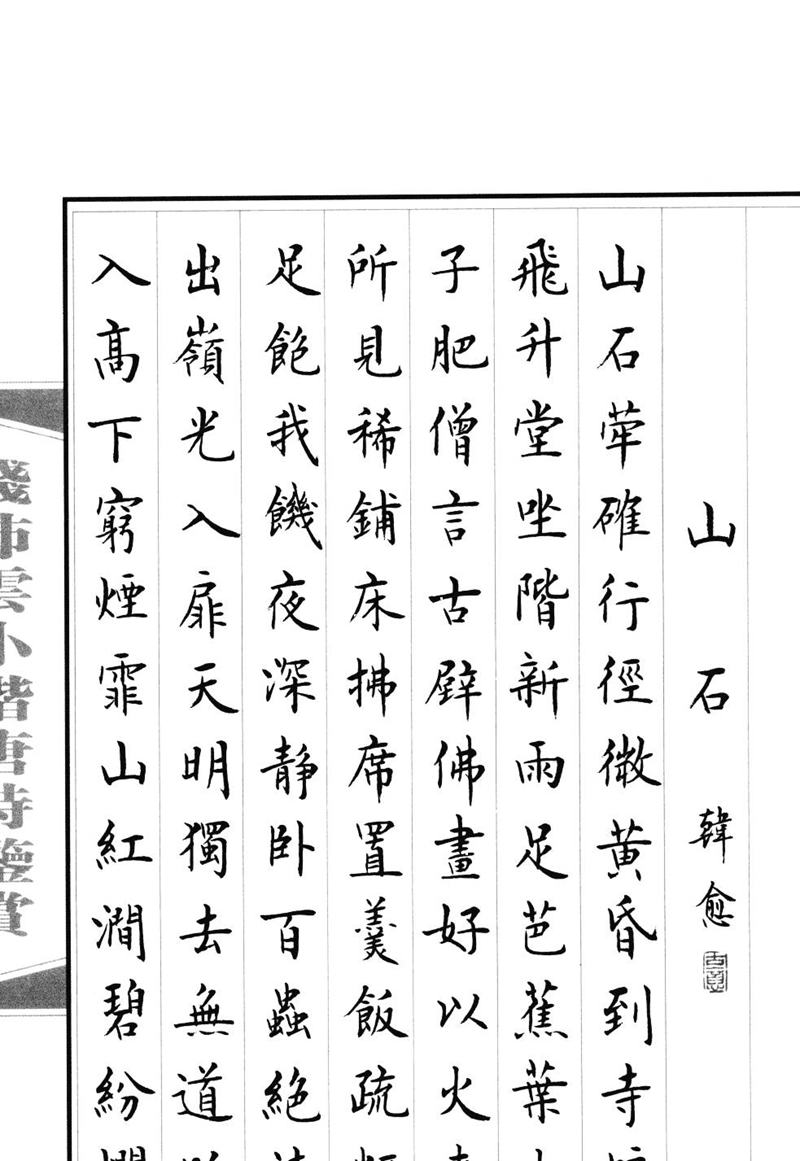 山石
韓愈
山石犖确行徑微黄昏到寺
飛升堂坐階新雨足芭蕉葉
子肥僧言古壁佛畫好以火
所見稀鋪床拂席置羹飯疏
足飽我饑夜深靜卧百蟲絶
出嶺光入扉天明獨去無道
入高下窮煙霏山紅澗碧紛
錢沛雲小楷唐詩鑒賞